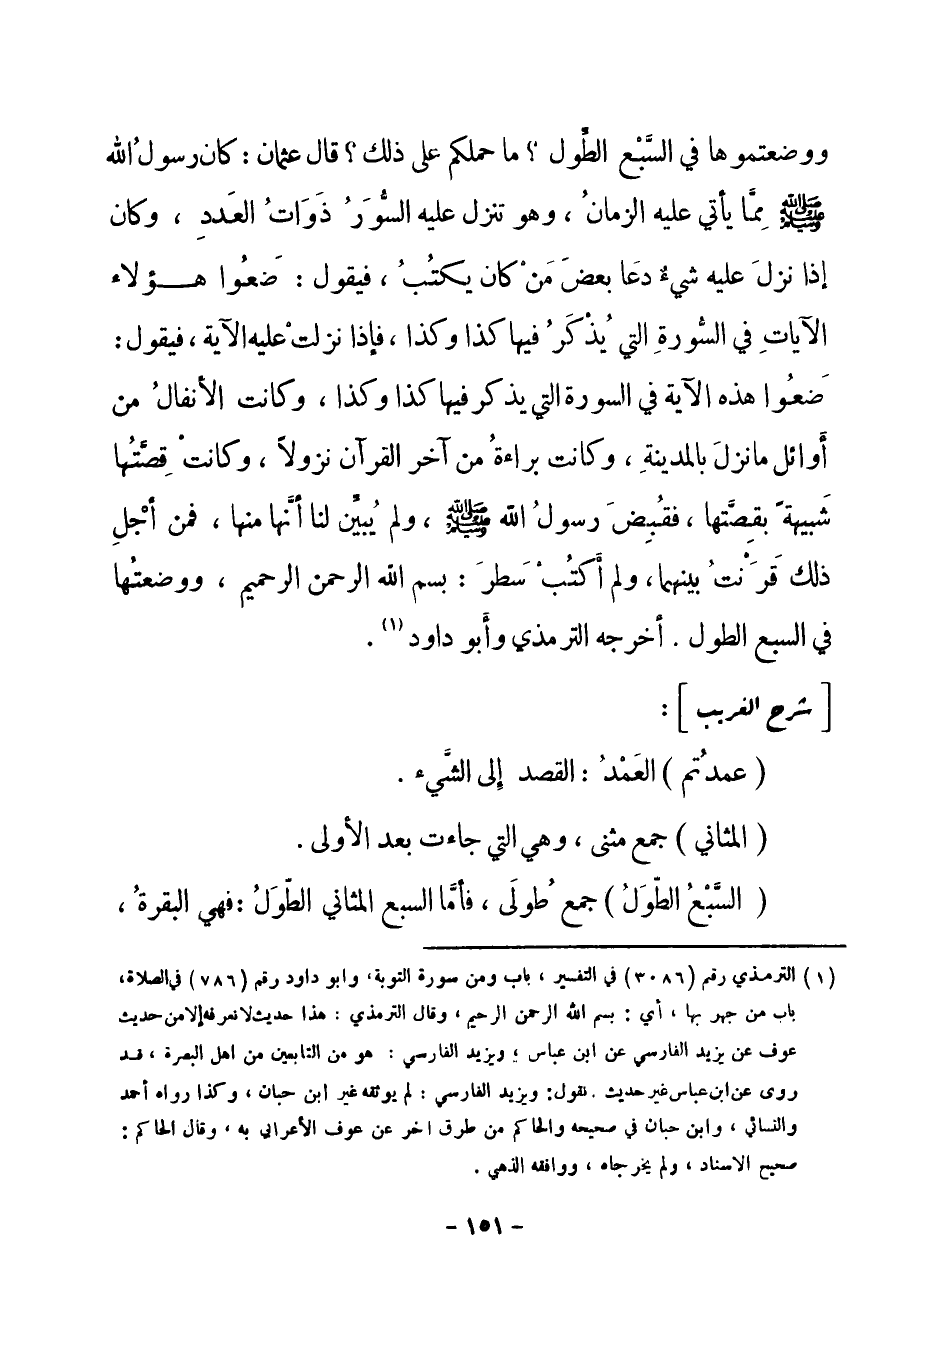 ووضعتموها في السَّبْع الطُّول ؟ ما حملكم على ذلك ؟ قال عثمان : كان رسولُ الله
ﷺ مِمَّا يأتي عليه الزمانُ ، وهو تنزل عليه السُّوَرُ ذَوَاتُ العَددِ ، وكان
إذا نزلَ عليه شيءٌ دعَا بعضَ مَنْ كان يكتُبُ ، فيقول : ضَعُوا هـــؤلاء
الآياتِ في السُّورةِ التي يُذْكَرُ فيها كذا وكذا ، فإذا نزلتْ عليه الآية ، فيقول :
ضَعُوا هذه الآية في السورة التي يذكر فيها كذا وكذا ، وكانت الأنفالُ من
أَوائل ما نزلَ بالمدينةِ ، وكانت براءةُ من آخر القرآن نزولاً ، وكانتْ قِصَّتُها
شَبيهةً بقصَّتها ، فقُبِضَ رسولُ الله ﷺ ، ولم يُبيِّن لنا أنَّها منها ، فمن أجْلِ
ذلك قَرَنْتُ بينهما ، ولم أَكتُبْ سَطرَ : بسم الله الرحمن الرحيم ، ووضعتُها
في السبع الطول . أخرجه الترمذي وأَبو داود (١) .
[ شرح الغريب ] :
( عمدتُم ) العَمْدُ : القصد إِلى الشَّيء .
( المثاني ) جمع مثنى ، وهي التي جاءت بعد الأولى .
( السَّبْعُ الطِّوَلُ ) جمع طُولَى ، فأمَّا السبع المثاني الطِّوَلُ : فهي البقرةُ ،
(١) الترمذي رقم (٣٠٨٦) في التفسير ، باب ومن سورة التوبة، وابو داود رقم (٧٨٦) في الصلاة،
باب من جهر بها ، أي : بسم الله الرحمن الرحيم ، وقال الترمذي : هذا حديث لا نعرفه إلا من حديث
عوف عن يزيد الفارسي عن ابن عباس ؛ ويزيد الفارسي : هو من التابعين من اهل البصرة ، قد
روى عن ابن عباس غير حديث . نقول: ويزيد الفارسي : لم يوثقه غير ابن حبان ، وكذا رواه أحمد
والنسائي ، وابن حبان في صحيحه والحاكم من طرق اخر عن عوف الأعرابي به ، وقال الحاكم :
صحيح الاسناد ، ولم يخرجاه ، ووافقه الذهبي .
- ١٥١ -